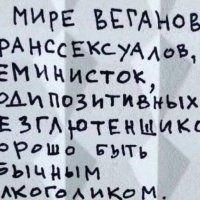 МИРЕ ВЕГАНОВ
РАНССЕКСУАЛОВ,
ЕМИНИСТОК,
ОДИПОЗИТИВНЫХ
ЕЗГЛЮТЕНЩИКО
ОРОШО БЫТЬ
БЫЧНЫМ
ЛКОГОЛИКОМ.